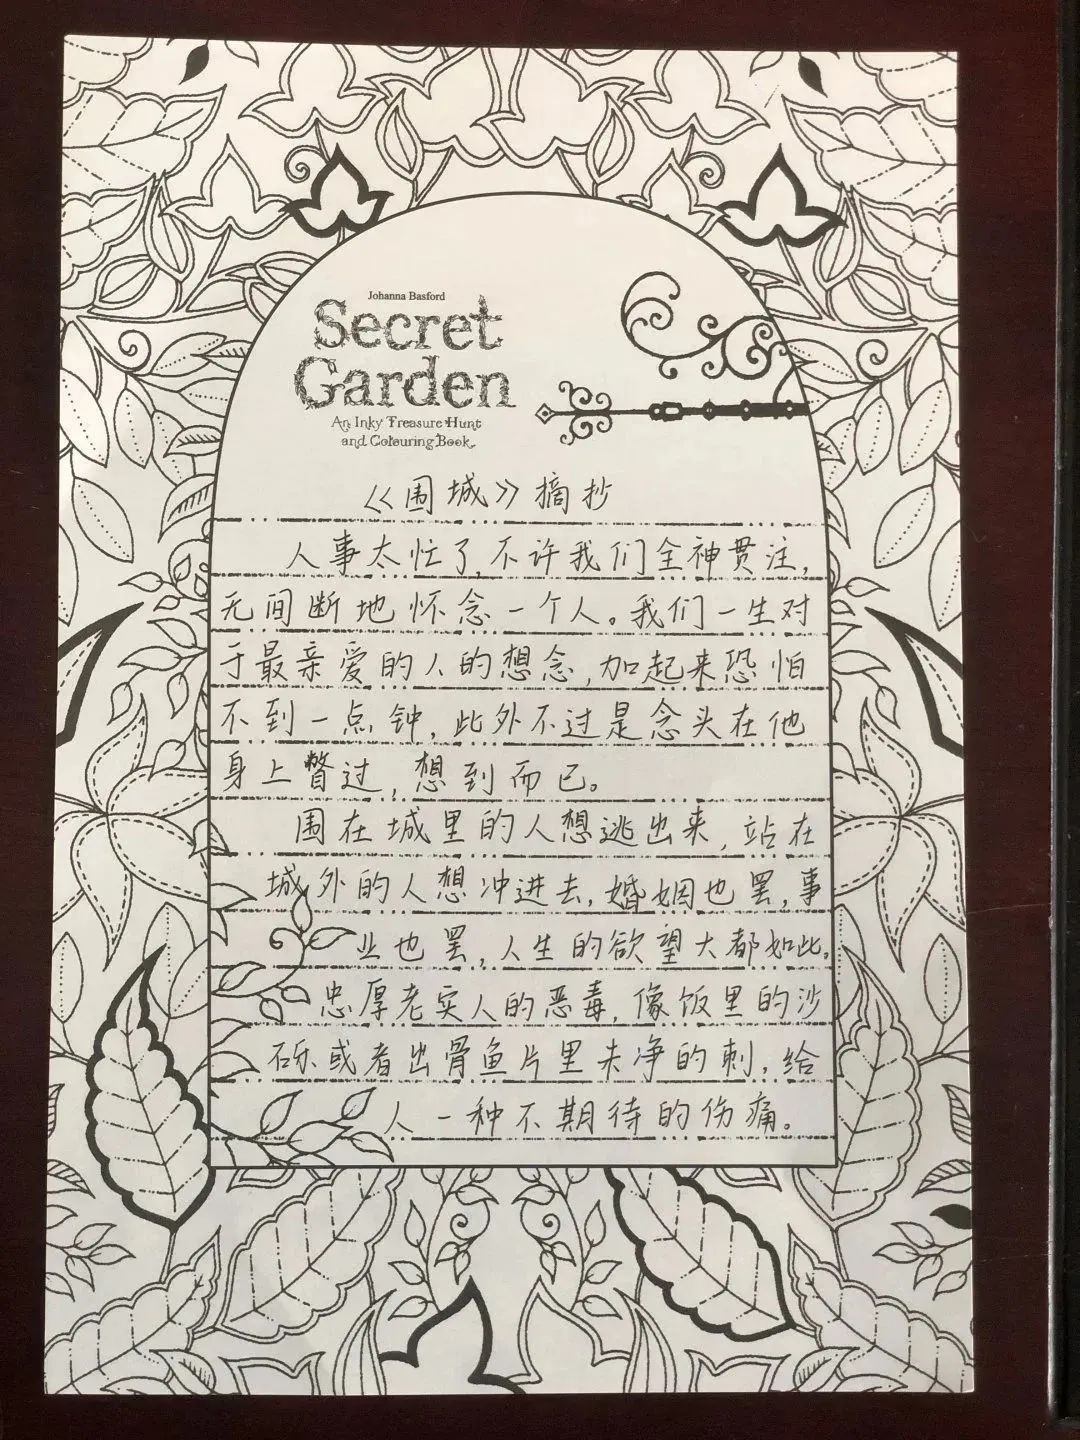 Johanna Basford
Secret
Garden
An Inky Treasure Hunt
and Colouring Book
《围城》摘抄
人事太忙了,不许我们全神贯注,
无间断地怀念一个人。我们一生对
于最亲爱的人的想念,加起来恐怕
不到一点钟,此外不过是念头在他
身上瞥过,想到而已。
围在城里的人想逃出来,站在
城外的人想冲进去,婚姻也罢,事
业也罢,人生的欲望大都如此。
忠厚老实人的恶毒,像饭里的沙
砾或者出骨鱼片里未净的刺,给
人一种不期待的伤痛。